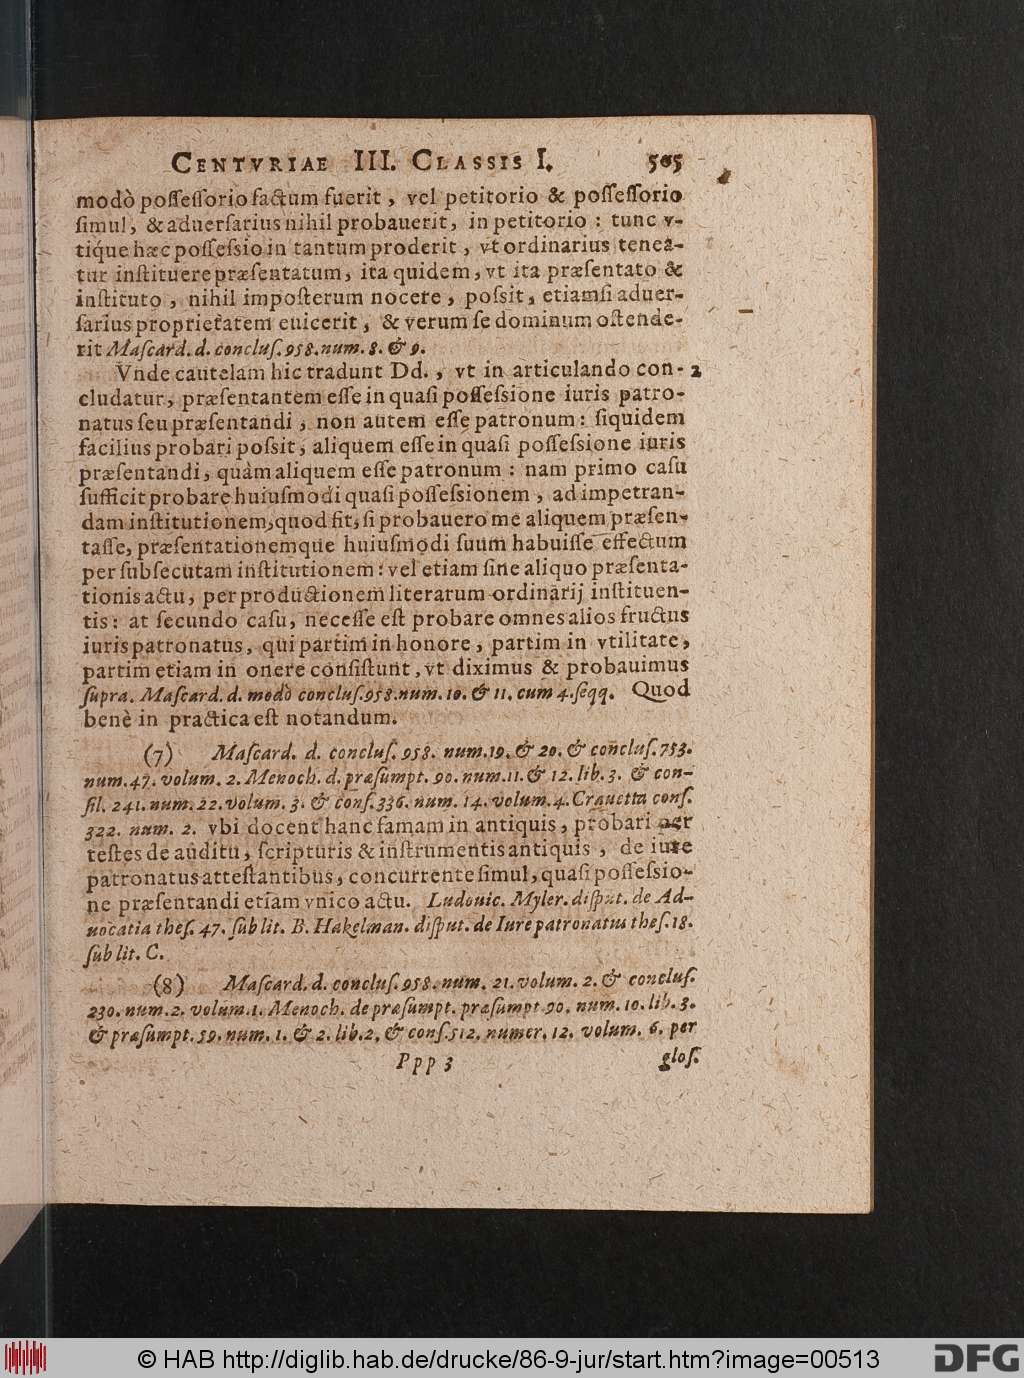 CENTVRIAE III. CLASSIS I. 505
modò poſſeſſorio factum fuerit, vel petitorio & poſſeſſorio
ſimul, & aduerſarius nihil probauerit, in petitorio : tunc v-
tiq́ue hæc poſſeſsio in tantum proderit, vt ordinarius tenea-
tur inſtituere præſentatum, ita quidem, vt ita præſentato &
inſtituto, nihil impoſterum nocere, poſsit, etiamſi aduer-
ſarius proprietatem euicerit, & verum ſe dominum oſtende-
rit Maſcard. d. concluſ. 958. num. 8. & 9.
Vnde cautelam hic tradunt Dd., vt in articulando con- 2
cludatur, præſentantem eſſe in quaſi poſſeſsione iuris patro-
natus ſeu præſentandi, non autem eſſe patronum: ſiquidem
facilius probari poſsit, aliquem eſſe in quaſi poſſeſsione iuris
præſentandi, quàm aliquem eſſe patronum : nam primo caſu
ſufficit probare huiuſmodi quaſi poſſeſsionem, ad impetran-
dam inſtitutionem, quod fit, ſi probauero me aliquem præſen-
taſſe, præſentationemque huiuſmodi ſuum habuiſſe effectum
per ſubſecutam inſtitutionem: vel etiam ſine aliquo præſenta-
tionis actu, per productionem literarum ordinarij inſtituen-
tis: at ſecundo caſu, neceſſe eſt probare omnes alios fructus
iuris patronatus, qui partim in honore, partim in vtilitate,
partim etiam in onere conſiſtunt, vt diximus & probauimus
ſupra. Maſcard. d. modò concluſ. 958. num. 10. & 11. cum 4. ſeqq. Quod
benè in practica eſt notandum.
(7) Maſcard. d. concluſ. 958. num. 19. & 20. & concluſ. 753.
num. 47. volum. 2. Menoch. d. præſumpt. 90. num. 11. & 12. lib. 3. & con-
ſil. 241. num. 22. volum. 3. & conſ. 336. num. 14. volum. 4. Crauetta conſ.
322. num. 2. vbi docent hanc famam in antiquis, probari per
teſtes de auditu, ſcripturis & inſtrumentis antiquis, de iure
patronatus atteſtantibus, concurrente ſimul, quaſi poſſeſsio-
ne præſentandi etiam vnico actu. Ludouic. Myler. diſput. de Ad-
uocatia theſ. 47. ſub lit. B. Hakelman. diſput. de Iure patronatus theſ. 18.
ſub lit. C.
(8) Maſcard. d. concluſ. 958. num. 21. volum. 2. & concluſ.
230. num. 2. volum. 1. Menoch. de præſumpt. præſumpt. 90. num. 10. lib. 3.
& præſumpt. 59. num. 1. & 2. lib. 2, & conſ. 512. numer. 12. volum. 6. per
Ppp 3 gloſ.
© HAB http://diglib.hab.de/drucke/86-9-jur/start.htm?image=00513
DFG